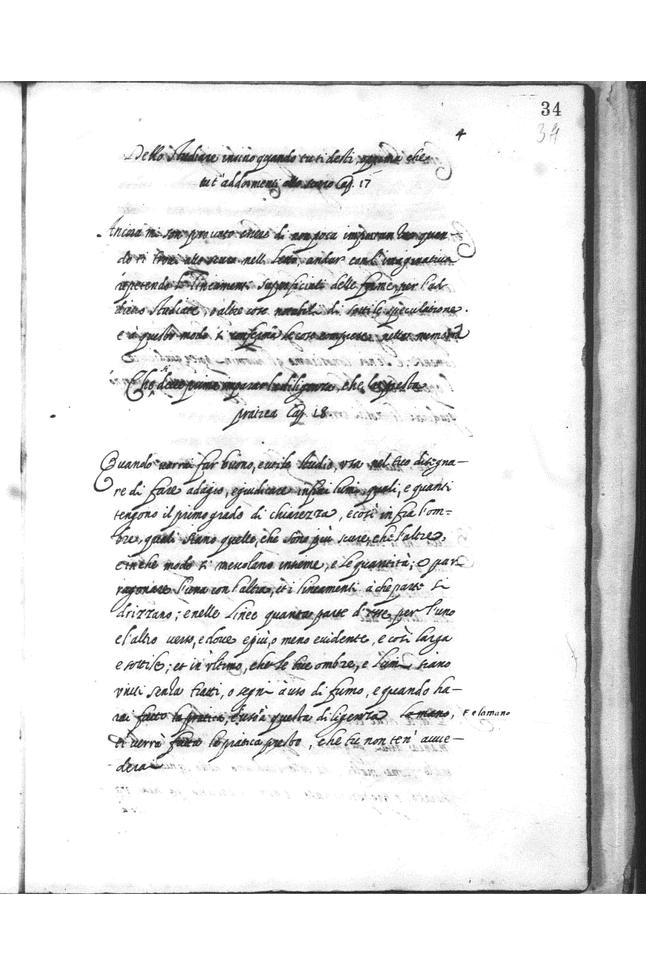 34
34
4
Dello studiare insino quando tu ti desti o prima che
tu t'addormenti allo scuro Cap. 17
Ancora mi son provato essere di non poca quan
do ti trovi allo scuro nelle letto, andar con l'imaginativa
repetendo li lineamenti superficiali delle forme per l'ad
dietro studiate, o altre cose notabili di sottile speculatione.
e à questo modo si le cose comprese nella memoria
Che deve prima imparar la diligenza, che la presta
pratica Cap. 18
Quando vorrai far buono, e utile studio, usa nel tuo disegna–
re di fare adagio, e giudicare infra i lumi, quali, e quanti
tengono il primo grado di chiarezza, e così infra l'om–
bre, quali siano quelle, che sono più scure, che l'altre,
e in che modo si mescolano insieme, e le quantità; e par
ragonare l'una con l'altra, et i lineamenti à che parte si
drizzano; e nelle linee quanta parte d' per l'uno
e l'altro verso, e dove e più, o meno evidente, e così larga
e sottile; et in ultimo, che le tue ombre, e lumi siano
uniti senza tratti, o segni à uso di fumo, e quando ha–
rai fatto la pratica, e usa questa diligenza la mano, F e la mano
ti verrà fatta la pratica presto, che tu non ten' avve–
derai